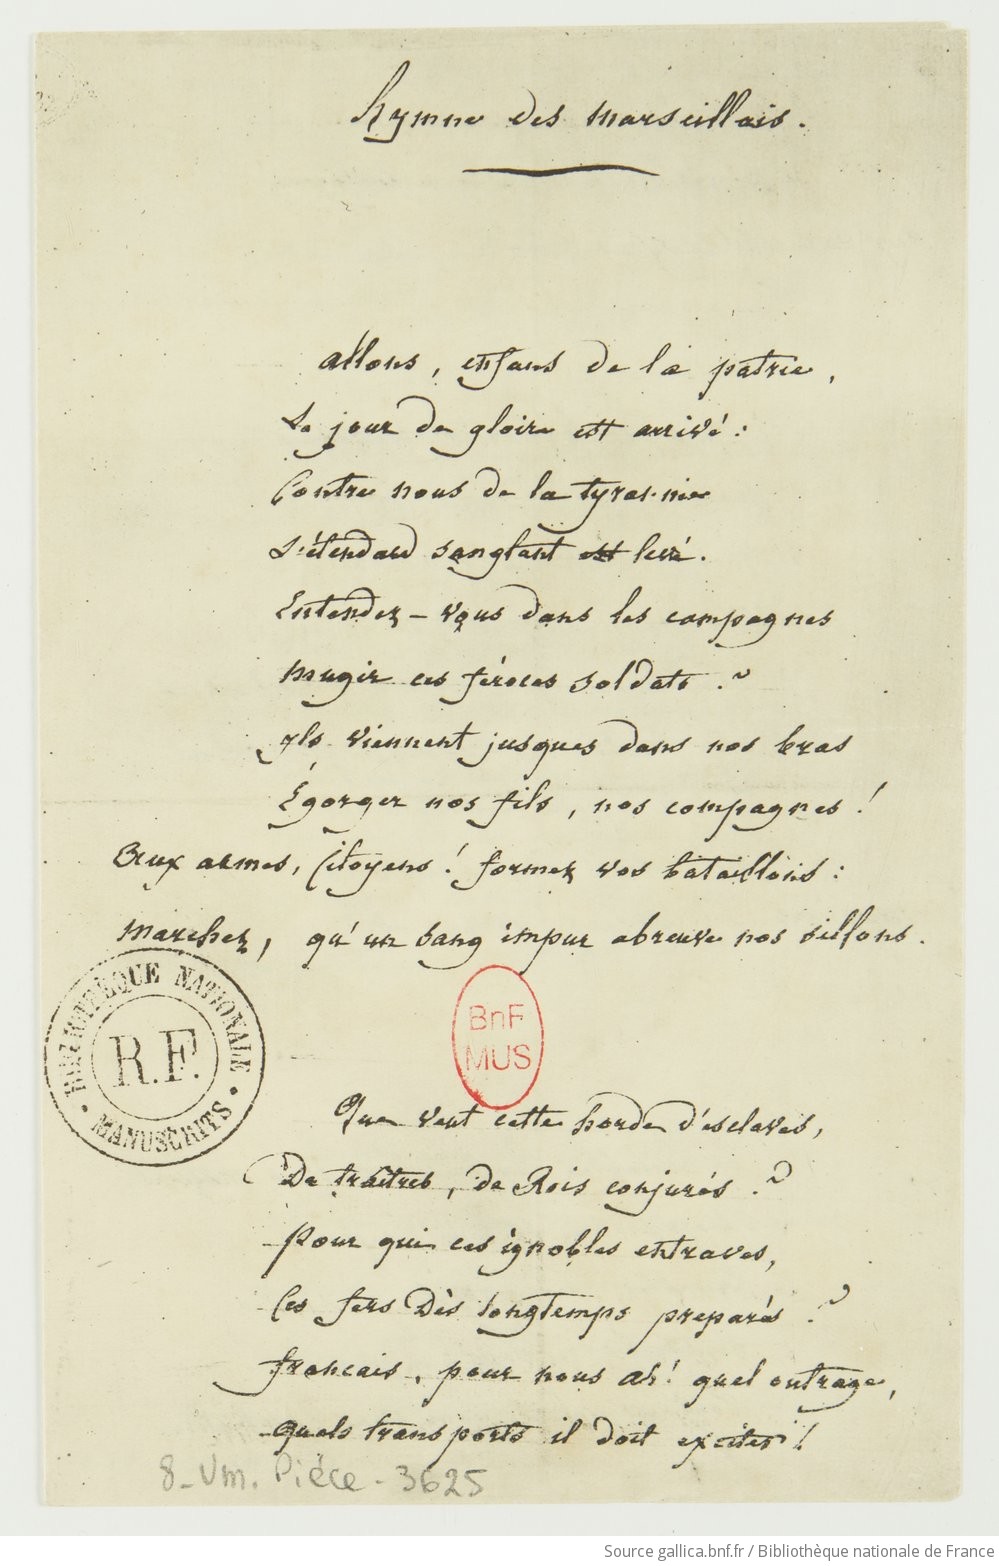 hymne des marseillais.
allons, enfans de la patrie,
Le jour de gloire est arrivé :
Contre nous de la tyrannie
L'étendard sanglant est levé.
Entendez-vous dans les campagnes
mugir ces féroces soldats ?
ils viennent jusques dans nos bras
Égorger nos fils, nos compagnes !
Aux armes, Citoyens ! formez vos bataillons :
marchez, qu'un sang impur abreuve nos sillons.
BIBLIOTHÈQUE NATIONALE
R.F.
MANUSCRITS
BnF
MUS
Que veut cette horde d'esclaves,
De traîtres, de Rois conjurés ?
pour qui ces ignobles entraves,
Ces fers Dès longtemps preparés ?
francais, pour nous ah ! quel outrage,
quels transports il doit exciter !
8-Vm. Pièce-3625
Source gallica.bnf.fr / Bibliothèque nationale de France